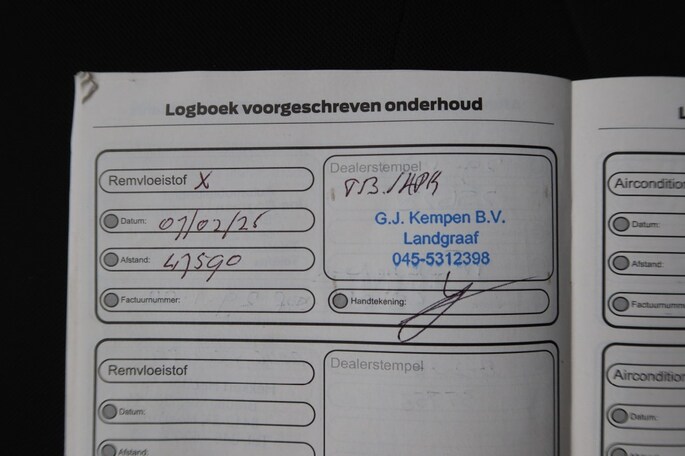 Logboek voorgeschreven onderhoud
Remvloeistof X
Datum: 07/02/25
Afstand: 47590
Factuurnummer:
Dealerstempel
G.J. Kempen B.V.
Landgraaf
045-5312398
Handtekening:
Remvloeistof
Datum:
Afstand:
Dealerstempel
L
Aircondition
Datum:
Afstand:
Factuurnumme
Aircondition
Datum: